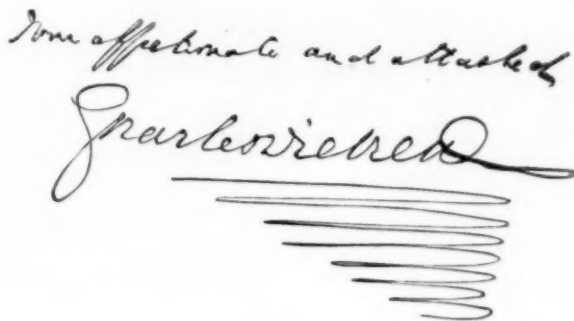 Your affectionate and attached
Charles Dickens